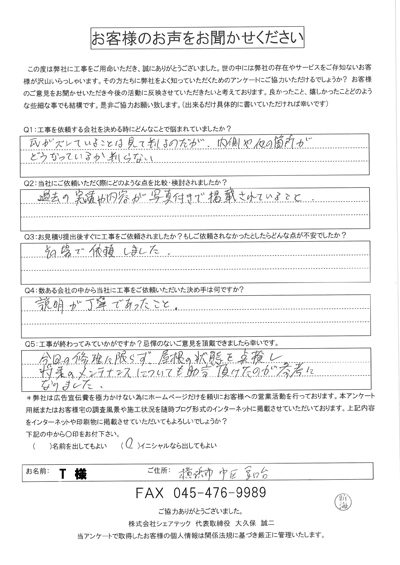 お客様のお声をお聞かせください
この度は弊社に工事をご用命いただき、誠にありがとうございました。世の中には弊社の存在やサービスをご存知ないお客
様が沢山いらっしゃいます。その方たちに弊社をよく知っていただくためのアンケートにご協力いただけるでしょうか? お客様
のご意見をお聞かせいただき今後の活動に反映させていただきたいと考えております。良かったこと、嬉しかったことどのよう
な些細な事でも結構です。是非ご協力お願い致します。(出来るだけ具体的に書いていただければ幸いです)
Q1:工事を依頼する会社を決める時にどんなことで悩まれていましたか?
瓦がズレていることは見て判るのだが、内側や他の箇所が
どうなっているか判らない
Q2:当社にご依頼いただく際にどのような点を比較・検討されましたか?
過去の実績や内容が写真付きで掲載されていること。
Q3:お見積り提出後すぐに工事をご依頼されましたか?もしご依頼されなかったとしたらどんな点が不安でしたか?
で依頼しました。
Q4:数ある会社の中から当社に工事をご依頼いただいた決め手は何ですか?
説明が丁寧であったこと。
Q5:工事が終わってみていかがですか?忌憚のないご意見を頂戴できましたら幸いです。
今回の修理に限らず、屋根の状態を点検し
将来のメンテナンスについても助言頂けたのが参考に
なりました。
*弊社は広告宣伝費を極力かけない為にホームページだけを頼りにお客様への営業活動を行っております。本アンケート
用紙またはお客様宅の調査風景や施工状況を随時ブログ形式のインターネットに掲載させていただいております。上記内容
をインターネットや印刷物に掲載させていただいてもよろしいでしょうか?
下記の中から〇印をお付下さい。
( )名前を出してもよい (○)イニシャルなら出してもよい
お名前: T 様 ご住所: 横浜市中区
FAX 045-476-9989
ご協力ありがとうございました。
株式会社シェアテック 代表取締役 大久保 誠二
当アンケートで取得したお客様の個人情報は関係法規に基づき厳正に管理いたします。